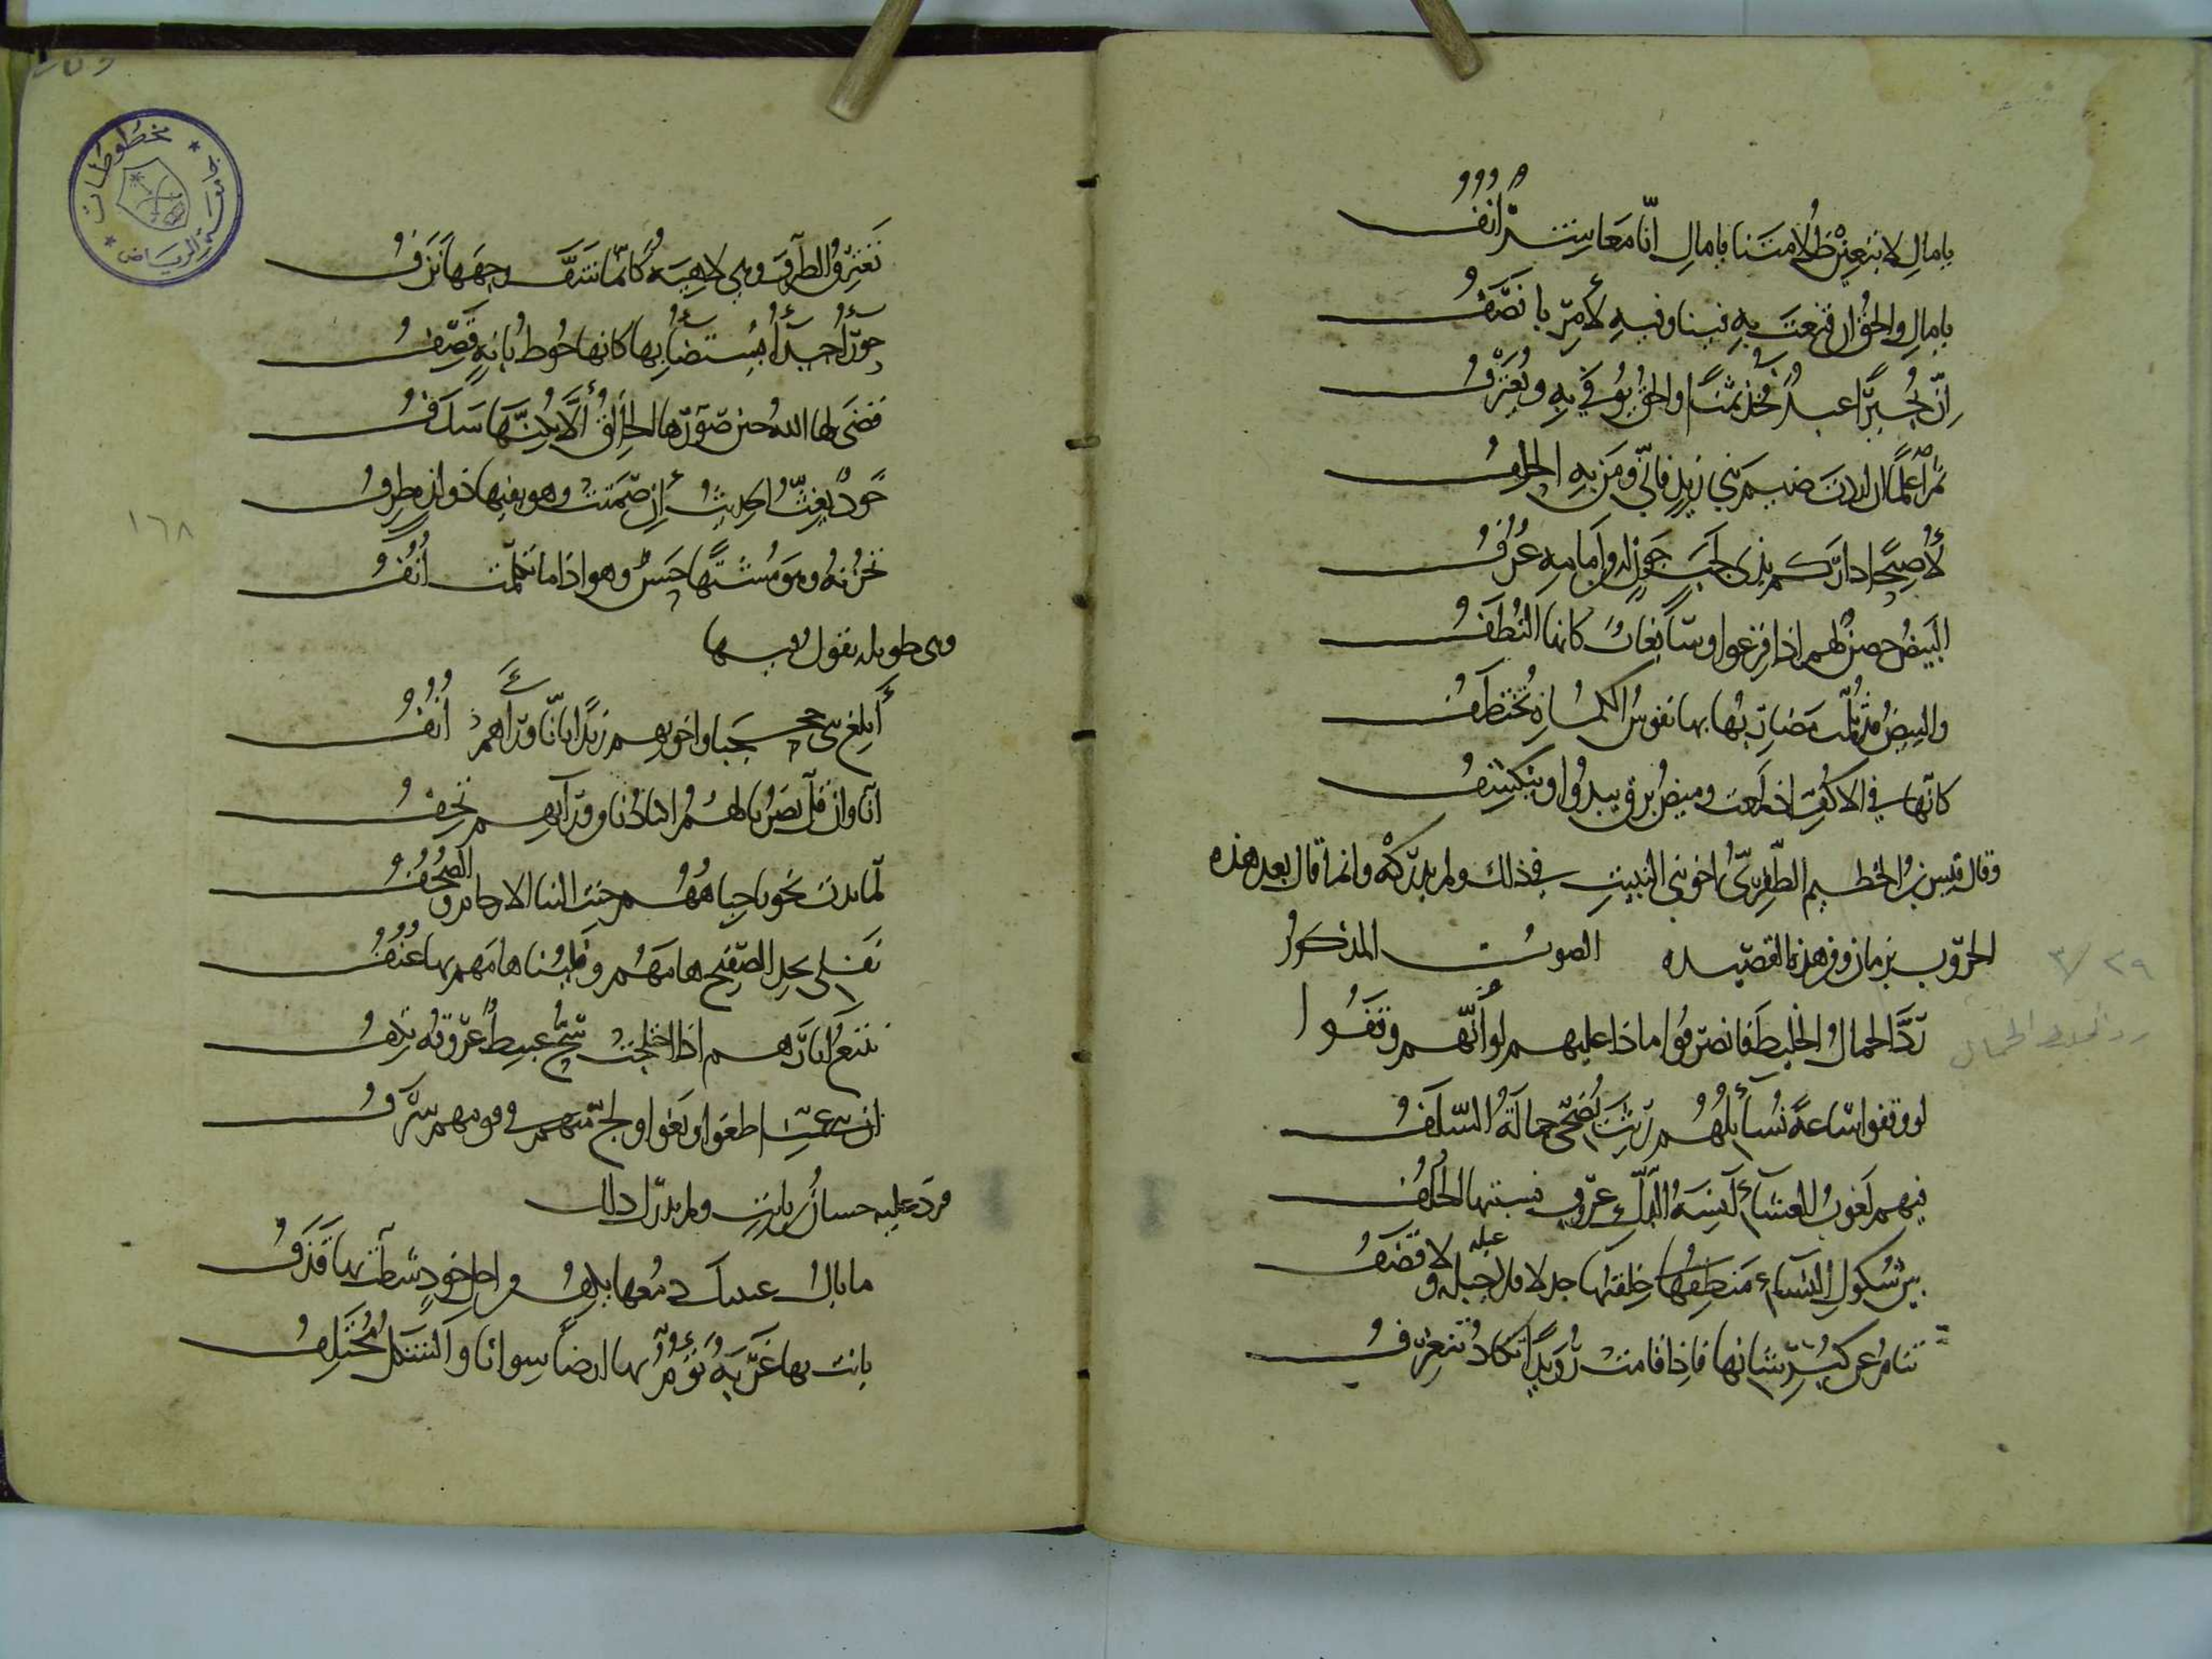 يا مالِ لا تبغين ظلامتنا يا مالِ إنّا معاشر أنف
يا مال والحق إن قنعت به فينا وفيه لأمر يا نصف
إن بجيرًا عبد فخذ ثمنًا والحق يوفى به ويعترف
ثم اعلمن إن أردت ضيم بني زيد فاني ومن به الحلف
لأصبحن داركم بذي لجب جون له من أمامه عزف
البيض حصن لهم إذا فزعوا وسابغات كانها النطف
والبيض قد ثلمت مضاربها بها نفوس الكماة تختطف
كأنها في الاكف إذ لمعت وميض برق يبدوا وينكسف
وقال قيس بن الخطيم الظفري اخو بني النبيت في ذلك ولم يدركه وانما قال بعد هذه
الحروب بزمان ومن هذه القصيده الصوت المذكور
ردّ الخليط الجمال فانصرفوا ماذا عليهم لو أنهم وقفوا
لو وقفوا ساعة نسائلهم ريث يضحي جماله السلف
فيهم لعوب العشاء آنسة الدل عروب يسوءها الخلف
بين شكول النساء خلقتها جدلا فلا جبله ولا قضف
عبله
تنام عن كبر شانها فاذا قامت رويدًا تكاد تنغرف
٢٩/٣
رد الخليط الجمال
تغترق الطرف وهي لاهية كأنما شف وجهها نزف
حورا جيدا يستضا بها كانها خوط بانة قصف
قضى لها الله حين صورها الخالق ألا يكنها سدف
خود يغث الحديث ان صمتت وهو بفيها ذو لذة طرف
تخزنه وهو مشتها حسن وهو اذا ما تكلمت أنف
وهي طويله يقول فيها
أبلغ بني جحجبا واخوتهم زيدا بانا وراهم أنف
انا وان قل نصرنا لهم اكبادنا من ورائهم تجف
لما بدت نحونا جباههم حنت الينا الارحام والصحف
نفلي بحد الصفيح هامهم وفلينا هامهم بها عنف
يتبع آثارها اذا اختلجت سخن عبيط عروقه تكف
ان بني عمنا طغوا وبغوا ولج منهم في قومهم سرف
فرد عليه حسان بن ثابت ولم يدرك ذلك
ما بال عينك دمعها يكف من ذكر خود شطت بها قذف
بانت بها غربة تؤم بها ارضا سوانا والشكل مختلف
١٦٨
جامعة الرياض
مخطوطات